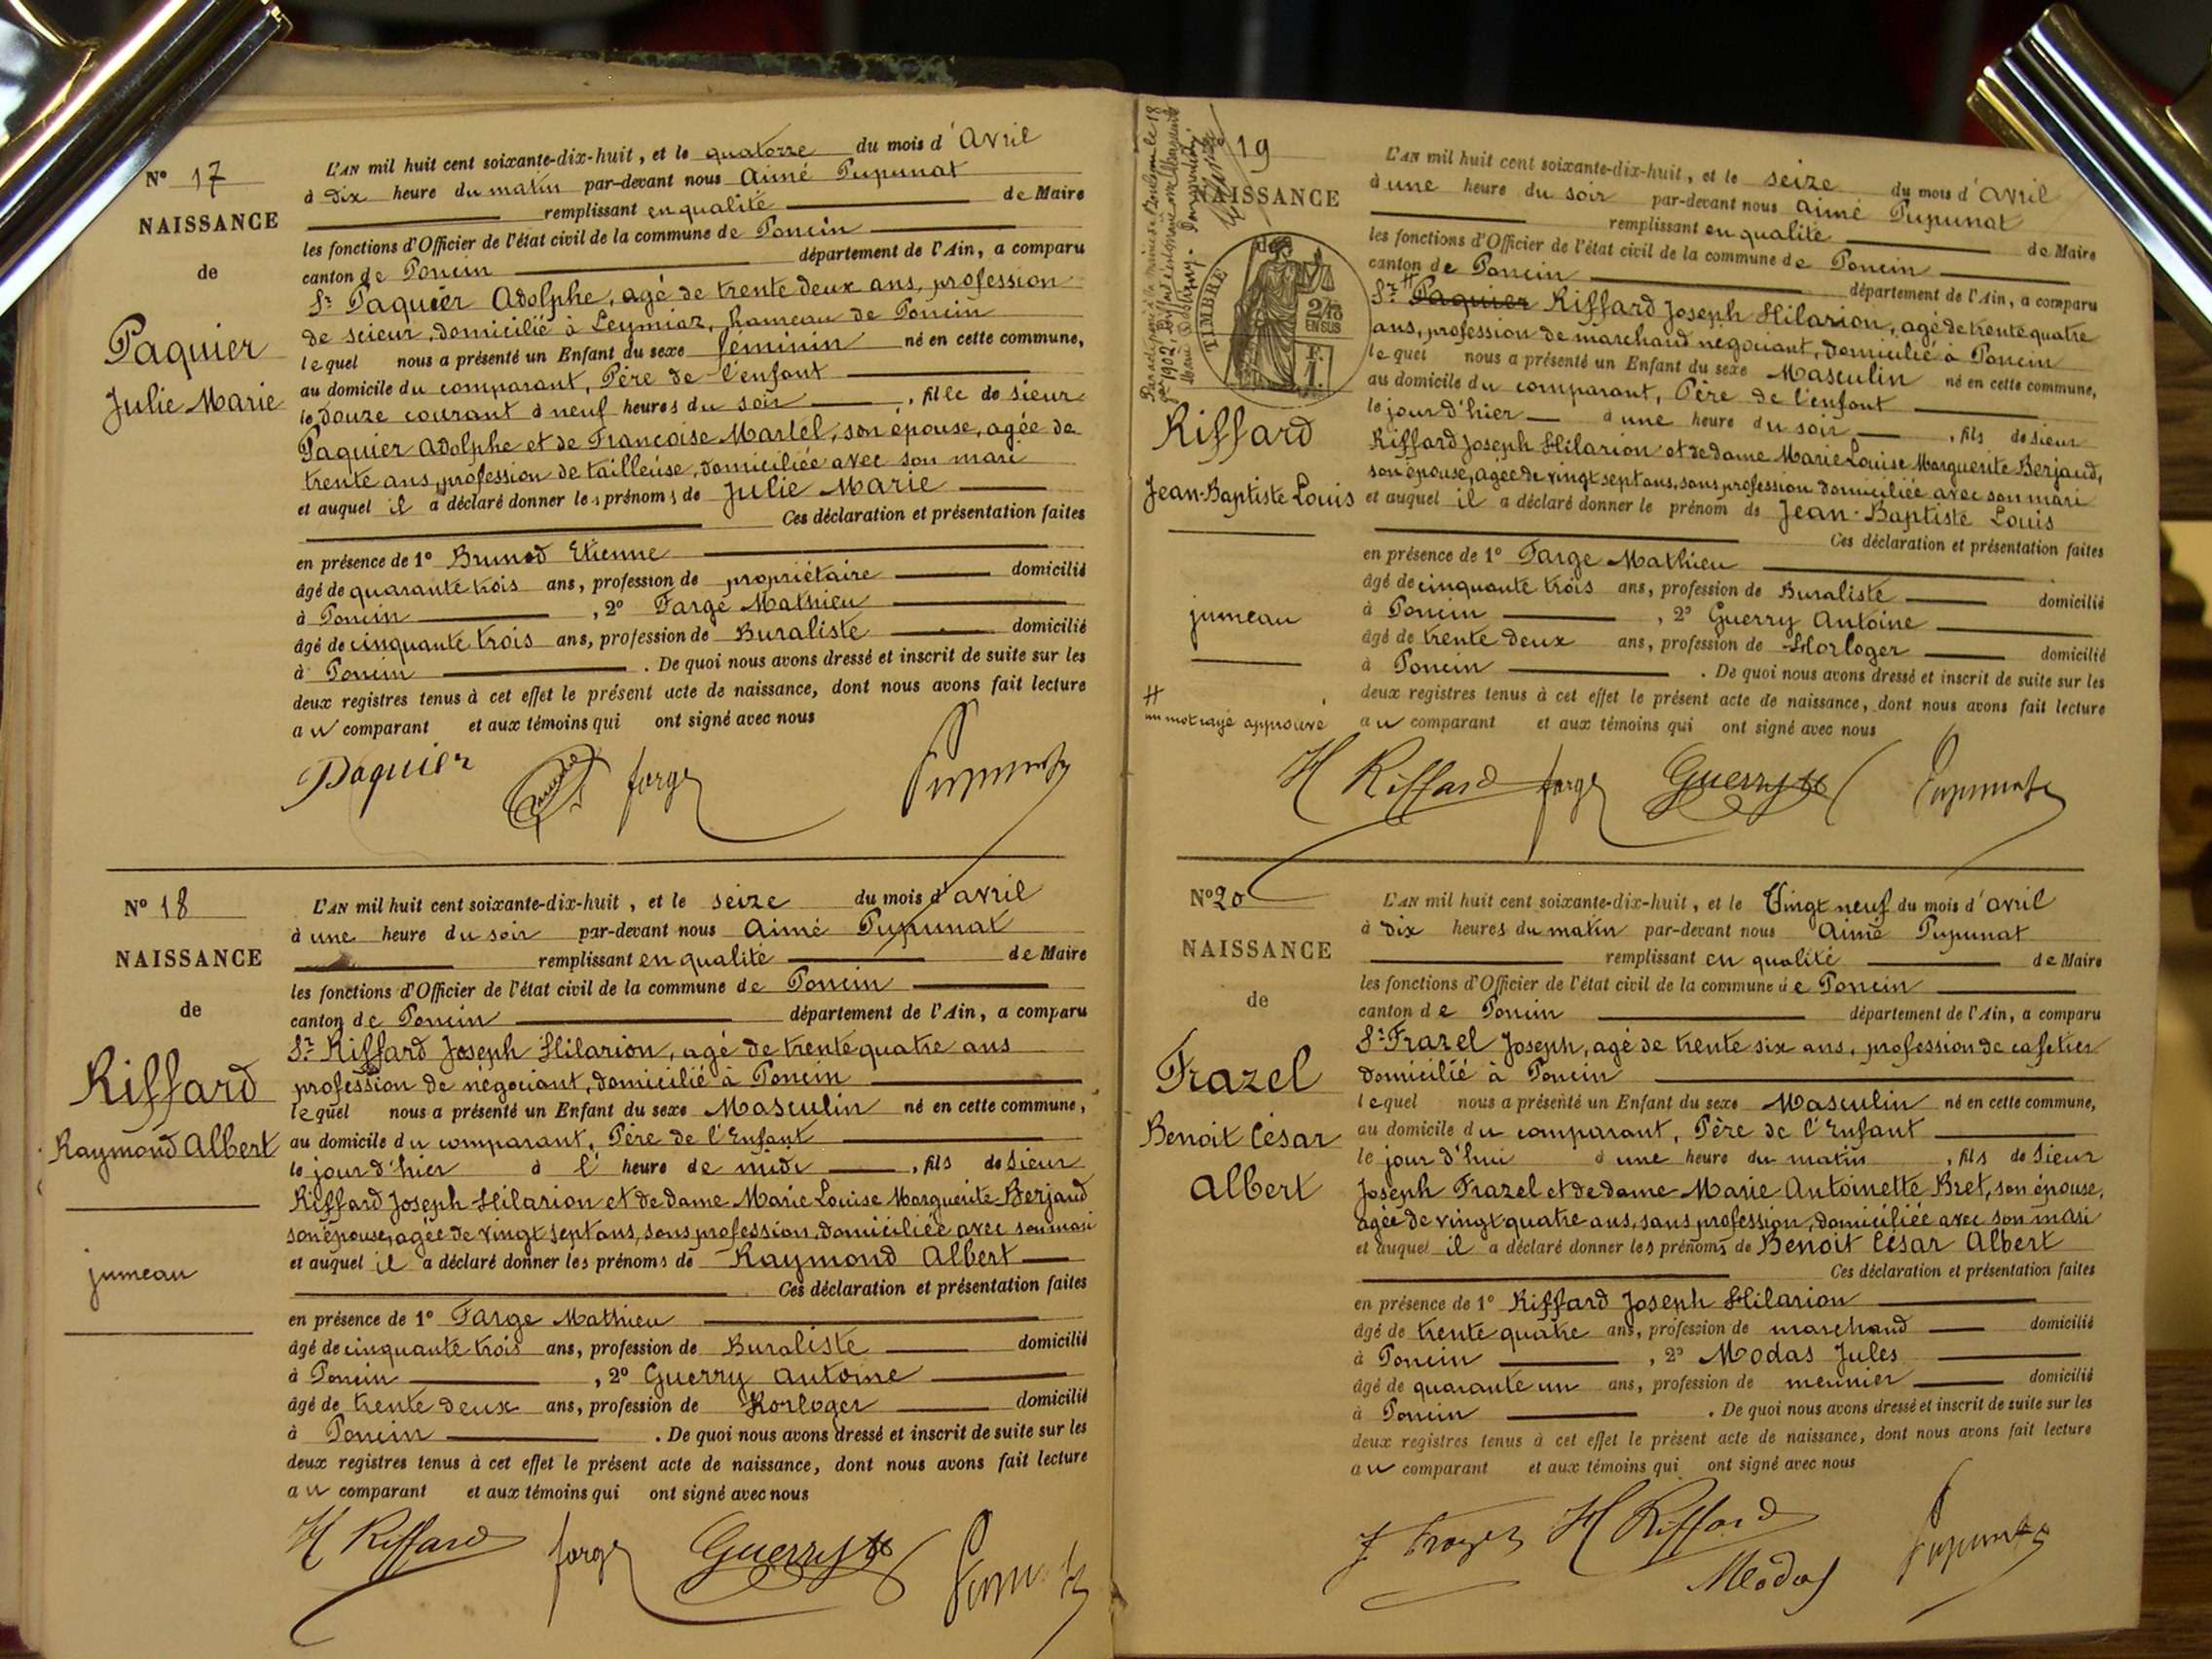 N° 17
NAISSANCE
de
Paquier
Julie Marie
L'AN mil huit cent soixante-dix-huit, et le quatorze du mois d'Avril
à Dix heure du matin par-devant nous Aimé Pupunat
remplissant en qualité de Maire
les fonctions d'Officier de l'état civil de la commune de Poncin
canton de Poncin département de l'Ain, a comparu
Sr Paquier Adolphe, agé de trente deux ans, profession
de scieur, domicilié à Leymiaz, hameau de Poncin
lequel nous a présenté un Enfant du sexe féminin né en cette commune,
au domicile du comparant, Père de l'enfant
le douze courant à neuf heures du soir, fille de sieur
Paquier Adolphe et de Françoise Martel, son épouse, agée de
trente ans, profession de tailleuse, domiciliée avec son mari
et auquel il a déclaré donner les prénoms de Julie Marie
Ces déclaration et présentation faites
en présence de 1° Brunod Etienne
âgé de quarante trois ans, profession de propriétaire domicilié
à Poncin, 2° Farge Mathieu
âgé de cinquante trois ans, profession de Buraliste domicilié
à Poncin. De quoi nous avons dressé et inscrit de suite sur les
deux registres tenus à cet effet le présent acte de naissance, dont nous avons fait lecture
au comparant et aux témoins qui ont signé avec nous
Paquier farge Pupunat
N° 18
NAISSANCE
de
Riffard
Raymond Albert
jumeau
L'AN mil huit cent soixante-dix-huit, et le seize du mois d'avril
à une heure du soir par-devant nous Aimé Pupunat
remplissant en qualité de Maire
les fonctions d'Officier de l'état civil de la commune de Poncin
canton de Poncin département de l'Ain, a comparu
Sr Riffard Joseph Hilarion, agé de trente quatre ans
profession de négociant, domicilié à Poncin
lequel nous a présenté un Enfant du sexe Masculin né en cette commune,
au domicile du comparant, Père de l'Enfant
le jour d'hier à l' heure de midi, fils de Sieur
Riffard Joseph Hilarion et de dame Marie Louise Marguerite Berjaud
son épouse, agée de vingt sept ans, sans profession, domiciliée avec son mari
et auquel il a déclaré donner les prénoms de Raymond Albert
Ces déclaration et présentation faites
en présence de 1° Farge Mathieu
âgé de cinquante trois ans, profession de Buraliste domicilié
à Poncin, 2° Guerry Antoine
âgé de trente deux ans, profession de Horloger domicilié
à Poncin. De quoi nous avons dressé et inscrit de suite sur les
deux registres tenus à cet effet le présent acte de naissance, dont nous avons fait lecture
au comparant et aux témoins qui ont signé avec nous
H Riffard farge Guerry Pupunat
19
NAISSANCE
de
TIMBRE
2/10
EN SUS
F.
1.
Riffard
Jean-Baptiste Louis
jumeau
#
un mot rayé approuvé
L'AN mil huit cent soixante-dix-huit, et le seize du mois d'avril
à une heure du soir par-devant nous Aimé Pupunat
remplissant en qualité de Maire
les fonctions d'Officier de l'état civil de la commune de Poncin
canton de Poncin département de l'Ain, a comparu
Sr # Paquier Riffard Joseph Hilarion, agé de trente quatre
ans, profession de marchand négociant, domicilié à Poncin
lequel nous a présenté un Enfant du sexe Masculin né en cette commune,
au domicile du comparant, Père de l'enfant
le jour d'hier à une heure du soir, fils de sieur
Riffard Joseph Hilarion et de dame Marie Louise Marguerite Berjaud,
son épouse, agée de vingt sept ans, sans profession domiciliée avec son mari
et auquel il a déclaré donner le prénom de Jean-Baptiste Louis
Ces déclaration et présentation faites
en présence de 1° Farge Mathieu
âgé de cinquante trois ans, profession de Buraliste domicilié
à Poncin, 2° Guerry Antoine
âgé de trente deux ans, profession de Horloger domicilié
à Poncin. De quoi nous avons dressé et inscrit de suite sur les
deux registres tenus à cet effet le présent acte de naissance, dont nous avons fait lecture
au comparant et aux témoins qui ont signé avec nous
H Riffard farge Guerry Pupunat
N° 20
NAISSANCE
de
Frazel
Benoit César
Albert
L'AN mil huit cent soixante-dix-huit, et le Vingt neuf du mois d'avril
à Dix heures du matin par-devant nous Aimé Pupunat
remplissant en qualité de Maire
les fonctions d'Officier de l'état civil de la commune de Poncin
canton de Poncin département de l'Ain, a comparu
Sr Frazel Joseph, agé de trente six ans, profession de cafetier
domicilié à Poncin
lequel nous a présenté un Enfant du sexe Masculin né en cette commune,
au domicile du comparant, Père de l'Enfant
le jour d'hui à une heure du matin, fils de Sieur
Joseph Frazel et de dame Marie Antoinette Bret, son épouse,
agée de vingt quatre ans, sans profession, domiciliée avec son mari
et auquel il a déclaré donner les prénoms de Benoit César Albert
Ces déclaration et présentation faites
en présence de 1° Riffard Joseph Hilarion
âgé de trente quatre ans, profession de marchand domicilié
à Poncin, 2° Modas Jules
âgé de quarante un ans, profession de meunier domicilié
à Poncin. De quoi nous avons dressé et inscrit de suite sur les
deux registres tenus à cet effet le présent acte de naissance, dont nous avons fait lecture
au comparant et aux témoins qui ont signé avec nous
J Frazel H Riffard Pupunat
Modas